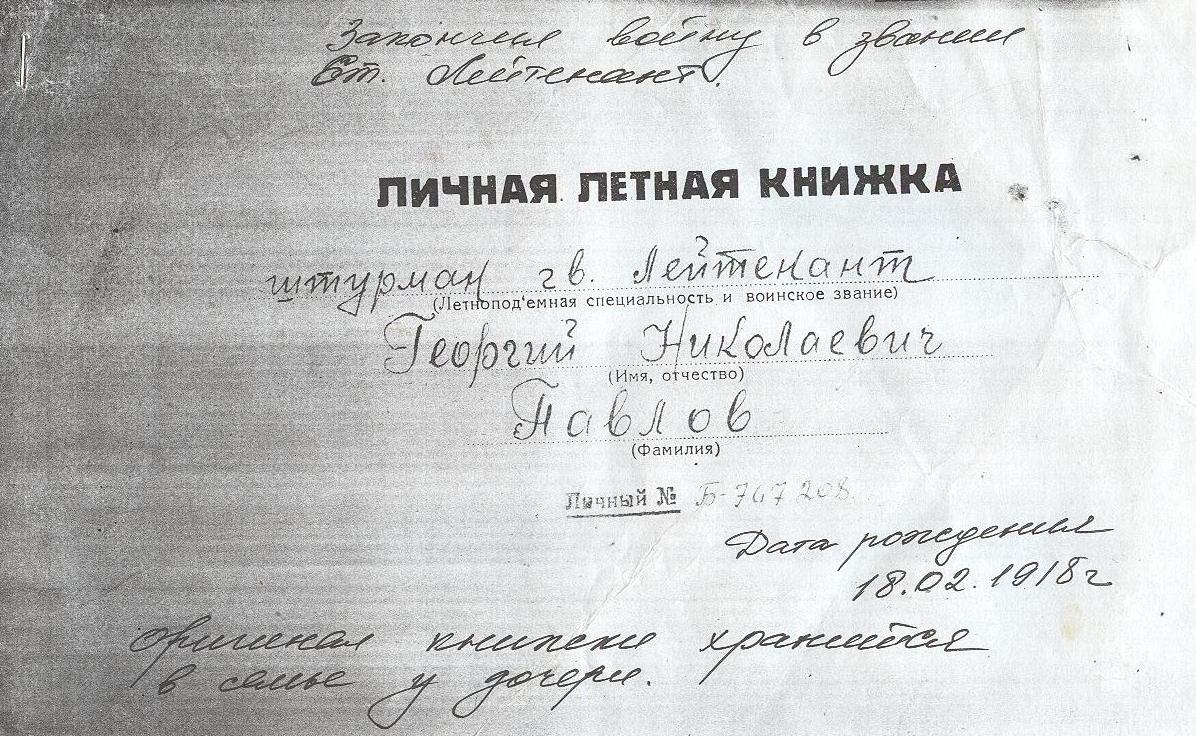 Закончил войну в звании
Ст. Лейтенант.
ЛИЧНАЯ ЛЕТНАЯ КНИЖКА
штурман гв. Лейтенант
(Летнопод'емная специальность и воинское звание)
Георгий Николаевич
(Имя, отчество)
Павлов
(Фамилия)
Личный № Б-747208
Дата рождения
18.02.1918г
оригинал книжки хранится
в семье у дочери.